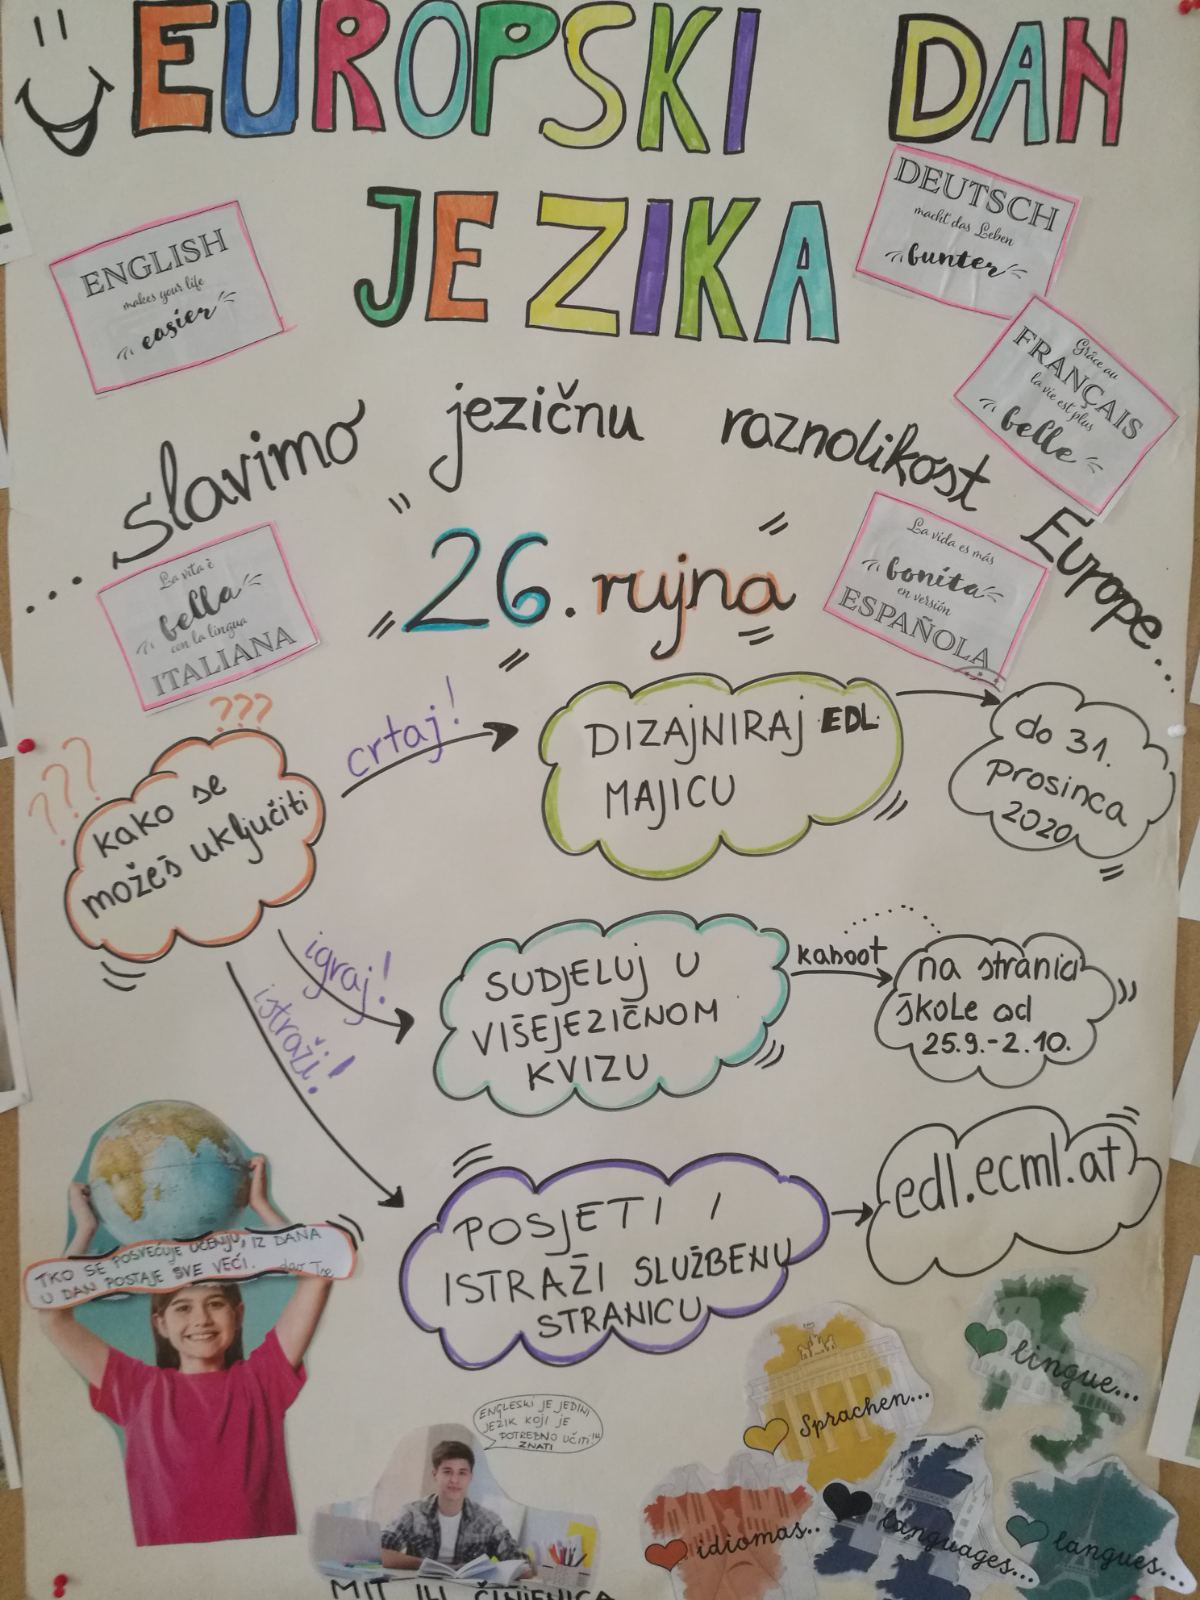 EUROPSKI DAN
JEZIKA
ENGLISH
makes your life
easier
DEUTSCH
macht das Leben
bunter
Grâce au
FRANÇAIS
la vie est plus
belle
...slavimo jezičnu raznolikost Europe...
La vita è
bella
con la lingua
ITALIANA
26. rujna
La vida es más
bonita
en versión
ESPAÑOLA
???
???
kako se
možeš uključiti
crtaj!
DIZAJNIRAJ EDL
MAJICU
do 31.
prosinca
2020.
igraj!
SUDJELUJ U
VIŠEJEZIČNOM
KVIZU
kahoot
na stranici
škole od
25.9.-2.10.
istraži!
POSJETI I
ISTRAŽI SLUŽBENU
STRANICU
edl.ecml.at
TKO SE POSVEĆUJE UČENJU, IZ DANA
U DAN POSTAJE SVE VEĆI.
ENGLESKI JE JEDINI
JEZIK KOJI JE
POTREBNO UČITI!
ZNATI
MIT ILI ČINJENICA
Sprachen...
lingue...
idiomas..
languages...
langues...